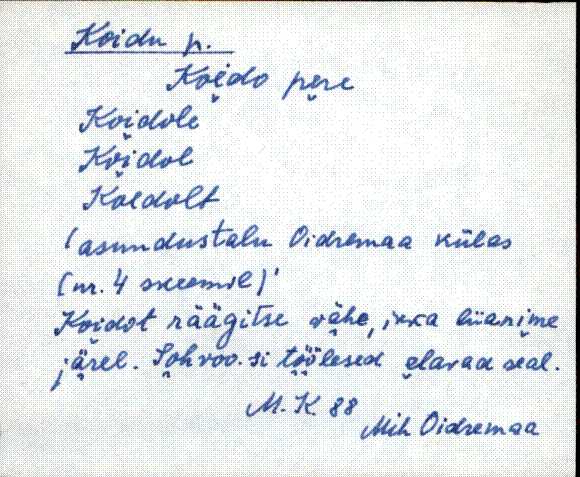 Koidu p.
Koido pere
Koidole
Koidol
Koedolt
(asundustalu Oidremaa külas
(nr. 4 skeemil)
Koidot räägitse vähe, ikka liianime
järel. Sohvoo.si töölesed elavad seal.
M. K. 88
Mih Oidremaa